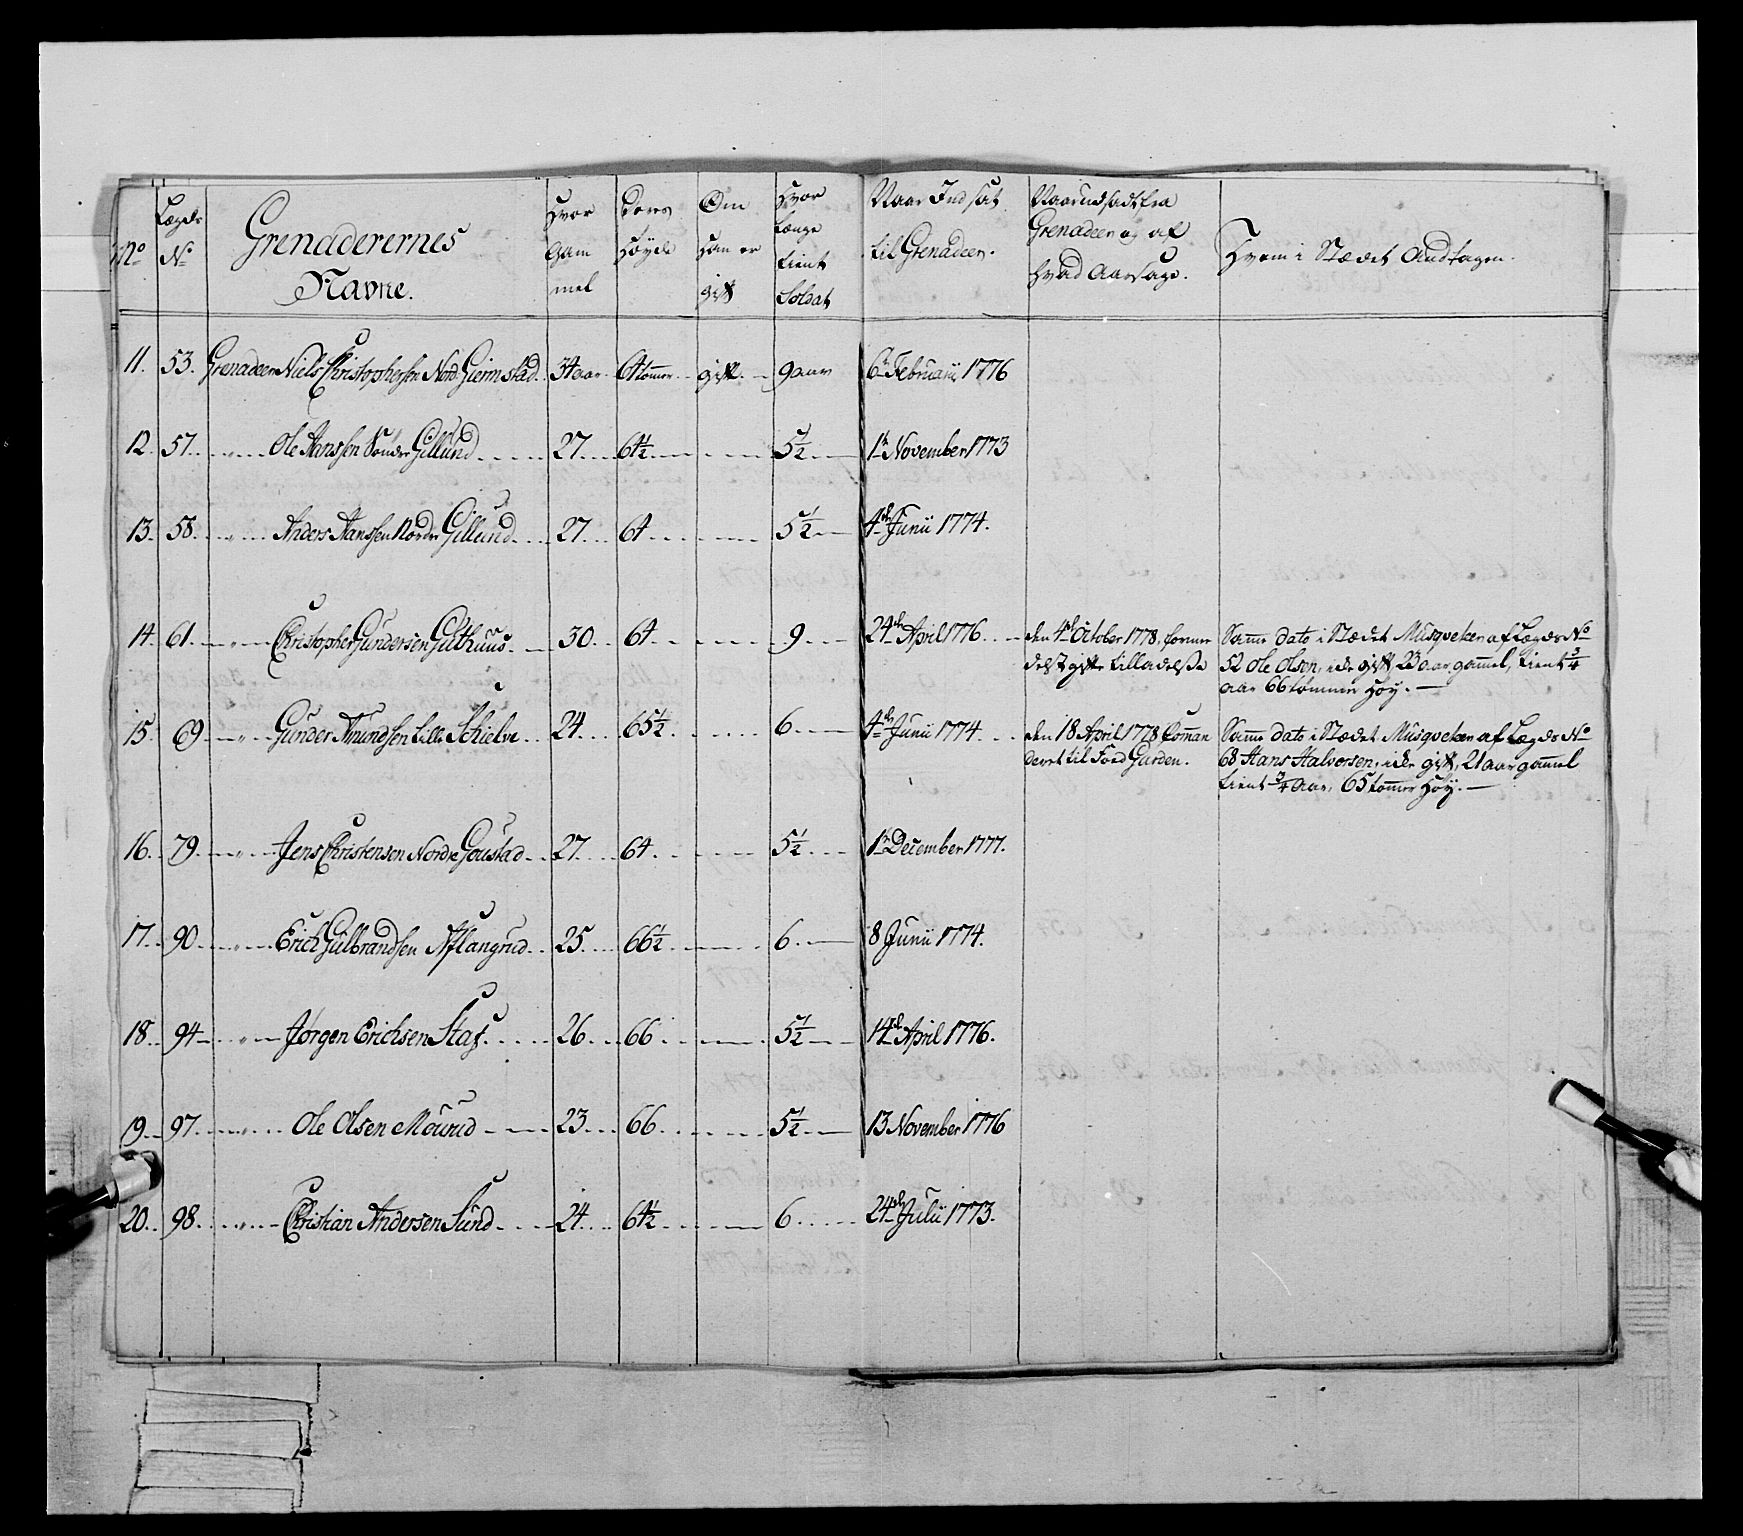 No
Lægds No
Grenaderernes Navne.
Hvor Gam mel
Deres Høyde
Om Han er gift
Hvor Længe tient Soldat
Naar Indsat til Grenadeer.
Naar udsadt fra Grenadeer og af hvad Aarsage.
Hvem i Stædet Andtagen.
11. 53. Grenadeer Niels Christophersen Nord Gierm stad. 34 aar 64 tommer gift. 9 aar 6te Februarii 1776
12. 57. " Ole Hanssen Sønder Gillund 27 64½ 5½ 1te November 1773
13. 58. " Anders Hanssen Nordre Gillund 27 64 5½ 4de Junii 1774.
14. 61. " Christopher Gundersen Guthuus. 30 64 9 24de April 1776. den 4de October 1778, formedelst gifte tilladelse Samme dato i Stædet Musqveteer af Lægds No
52 Ole Olsen, icke gift 23 aar gammel, tient ¾
aar 66 tommer høy.
15. 69. " Gunder Amundsen Lille Schielve 24. 65½ 6 4de Junii 1774. den 18 April 1778, Comman Samme dato i Stædet Musqveteer af Lægds No
deret til Foed Garden. 68 Hans Halvorsen, icke gift, 21 aar gammel
tient ¾ Aar, 65 tommer høy.
16. 79. " Jens Christensen Nordre Goustad 27 64. 5½ 1te December 1777.
17. 90. " Erich Gulbrandsen Aflangrud 25 66½ 6 8 Junii 1774.
18. 94 " Jørgen Erichsen 26 66 5½ 14de April 1776.
19. 97. " Ole Olsen Mourud 23 66 5½ 13 November 1776
20. 98. " Christian Andersen Sund 24 64½ 6 24de Julii 1773.